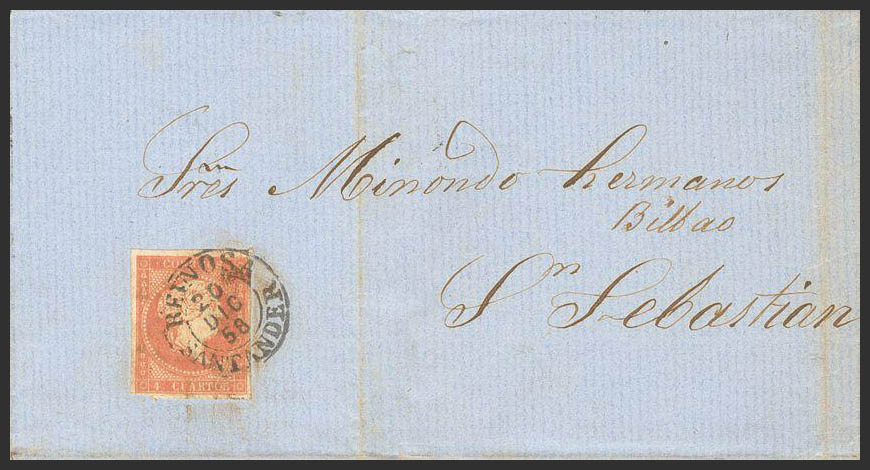 Sres Minondo hermanos
Bilbao
Sn Sebastian
REINOSA
20
DIC
58
SANTANDER
4 CUARTOS